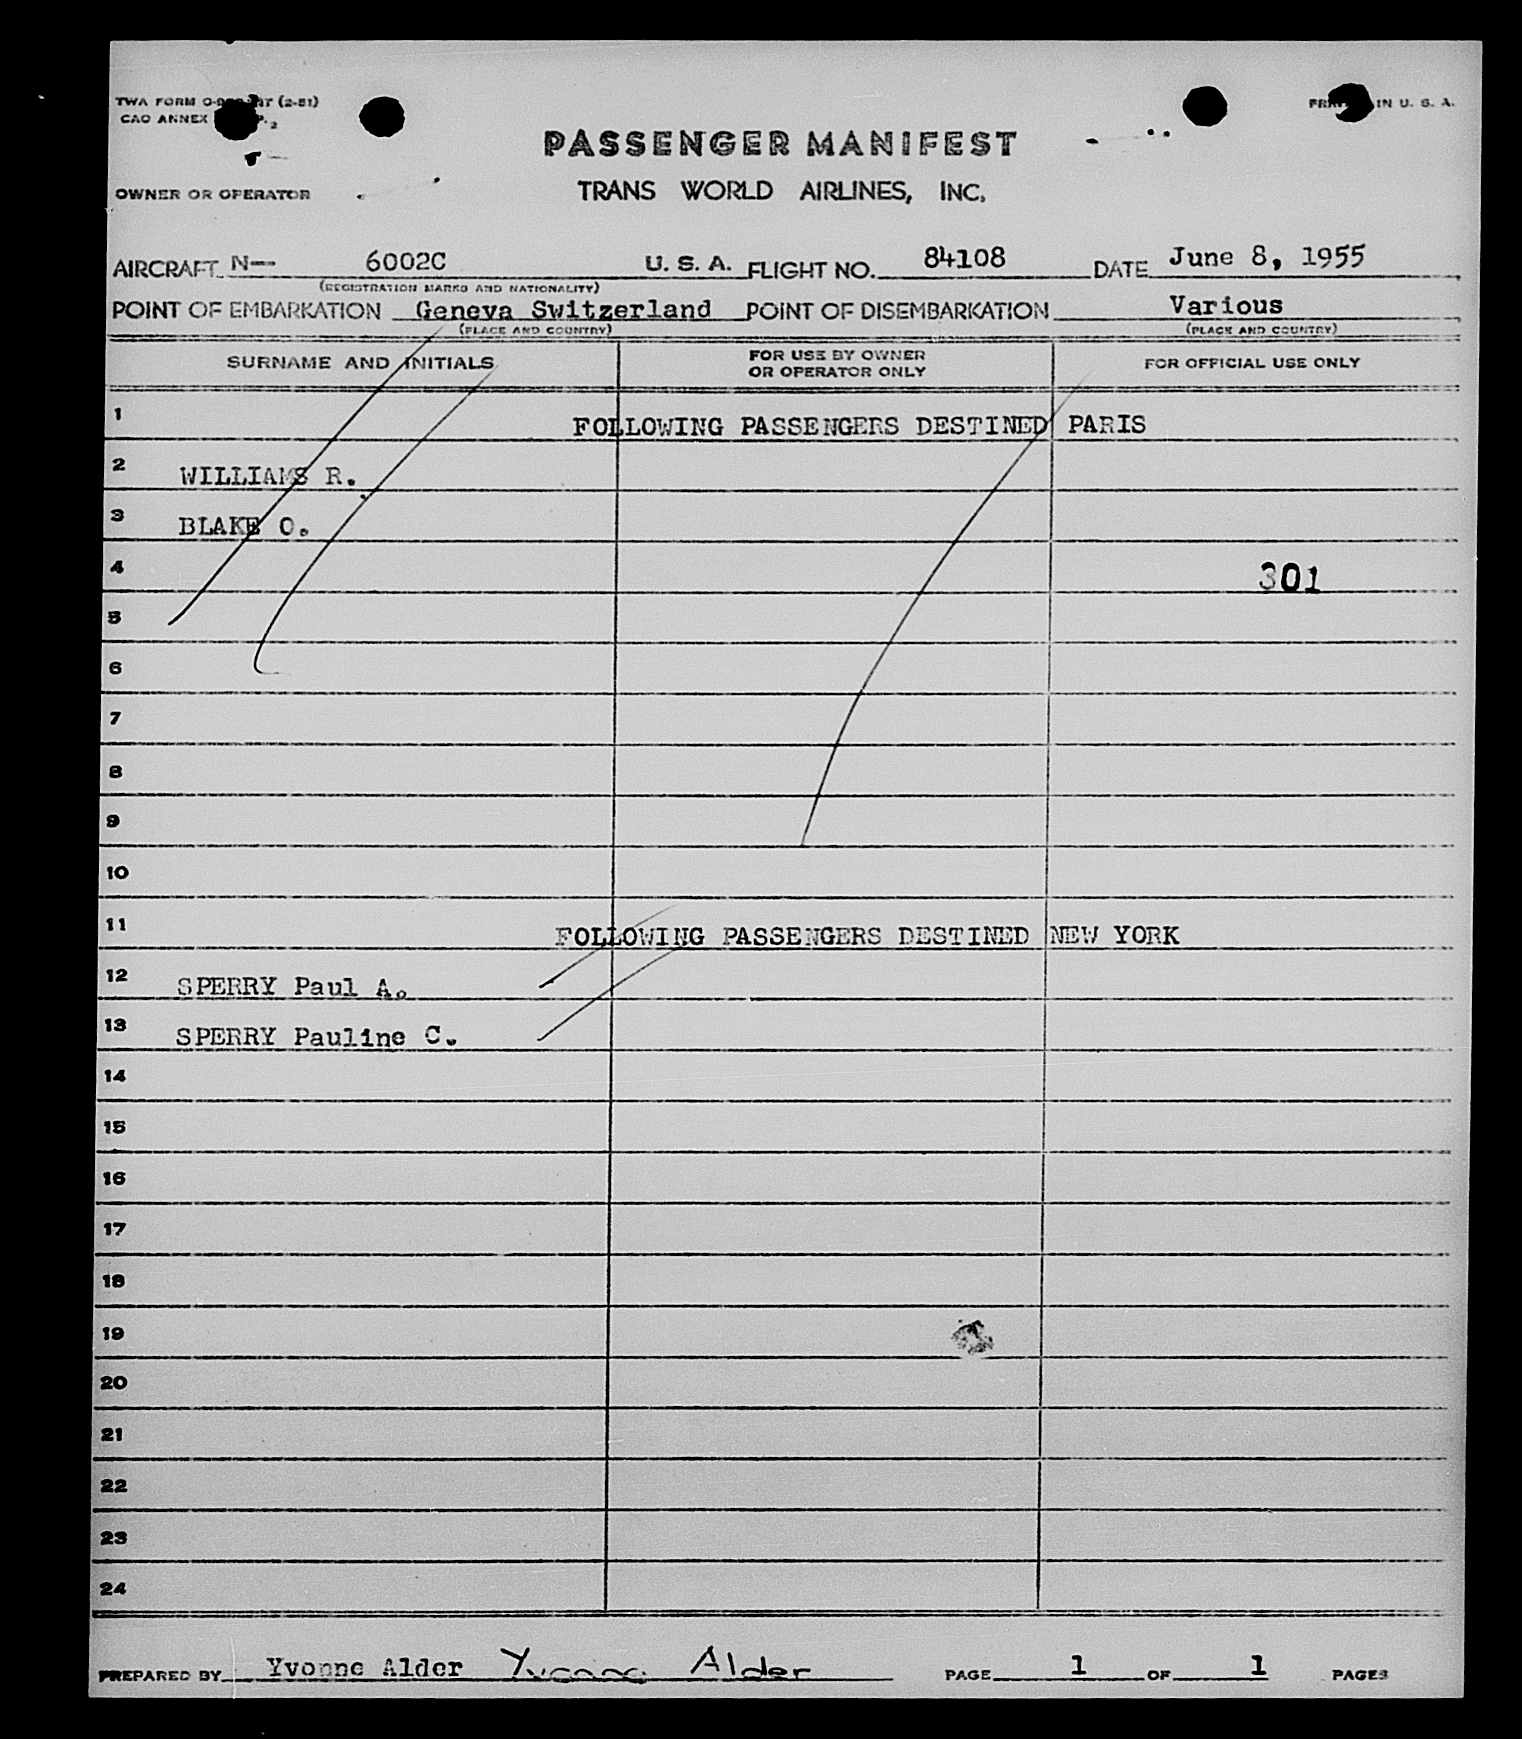 TWA FORM (2-51)
PRINTED IN U. S. A.
CAO ANNEX
PASSENGER MANIFEST
OWNER OR OPERATOR
TRANS WORLD AIRLINES, INC.
AIRCRAFT N— 6002C U. S. A. FLIGHT NO. 84108 DATE June 8, 1955
(REGISTRATION MARKS AND NATIONALITY)
POINT OF EMBARKATION Geneva Switzerland POINT OF DISEMBARKATION Various
(PLACE AND COUNTRY) (PLACE AND COUNTRY)
SURNAME AND INITIALS FOR USE BY OWNER OR OPERATOR ONLY FOR OFFICIAL USE ONLY
1 FOLLOWING PASSENGERS DESTINED PARIS
2 WILLIAMS R.
3 BLAKE O.
4 301
5
6
7
8
9
10
11 FOLLOWING PASSENGERS DESTINED NEW YORK
12 SPERRY Paul A.
13 SPERRY Pauline C.
14
15
16
17
18
19
20
21
22
23
24
PREPARED BY Yvonne Alder Yvonne Alder PAGE 1 OF 1 PAGES